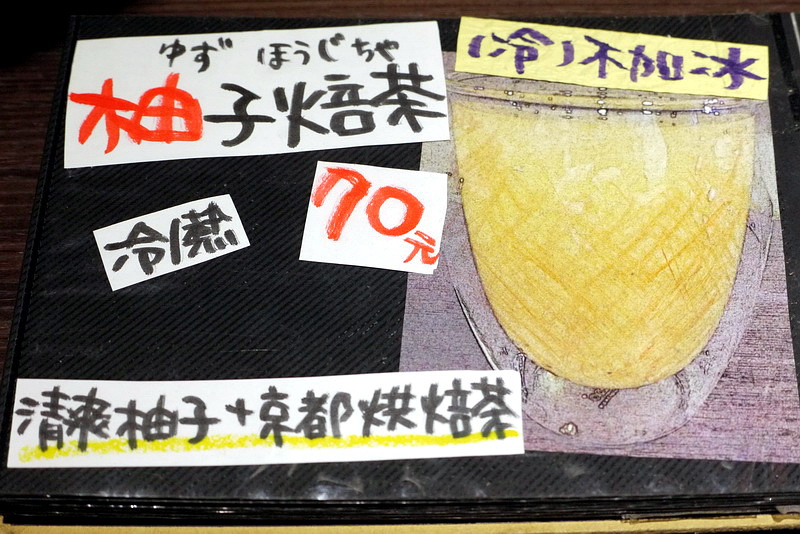 ゆず ほうじちゃ
柚子焙茶
(冷)不加冰
70元
冷/熱
清爽柚子+京都烘焙茶